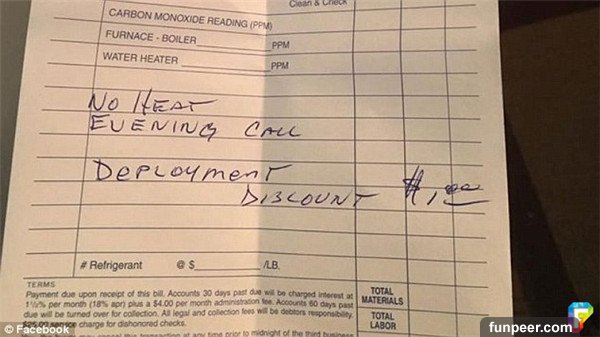 Clean & Check
CARBON MONOXIDE READING (PPM)
FURNACE - BOILER PPM
WATER HEATER PPM
NO HEAT
EVENING CALL
DEPLOYMENT
DISCOUNT $1,00
# Refrigerant @ $ /LB.
TERMS
Payment due upon receipt of this bill. Accounts 30 days past due will be charged interest at
1½% per month (18% apr) plus a $4.00 per month administration fee. Accounts 60 days past
due will be turned over for collection. All legal and collection fees will be debtors responsibility.
service charge for dishonored checks.
this transaction at any time prior to midnight of the third business
TOTAL
MATERIALS
TOTAL
LABOR
© Facebook
funpeer.com